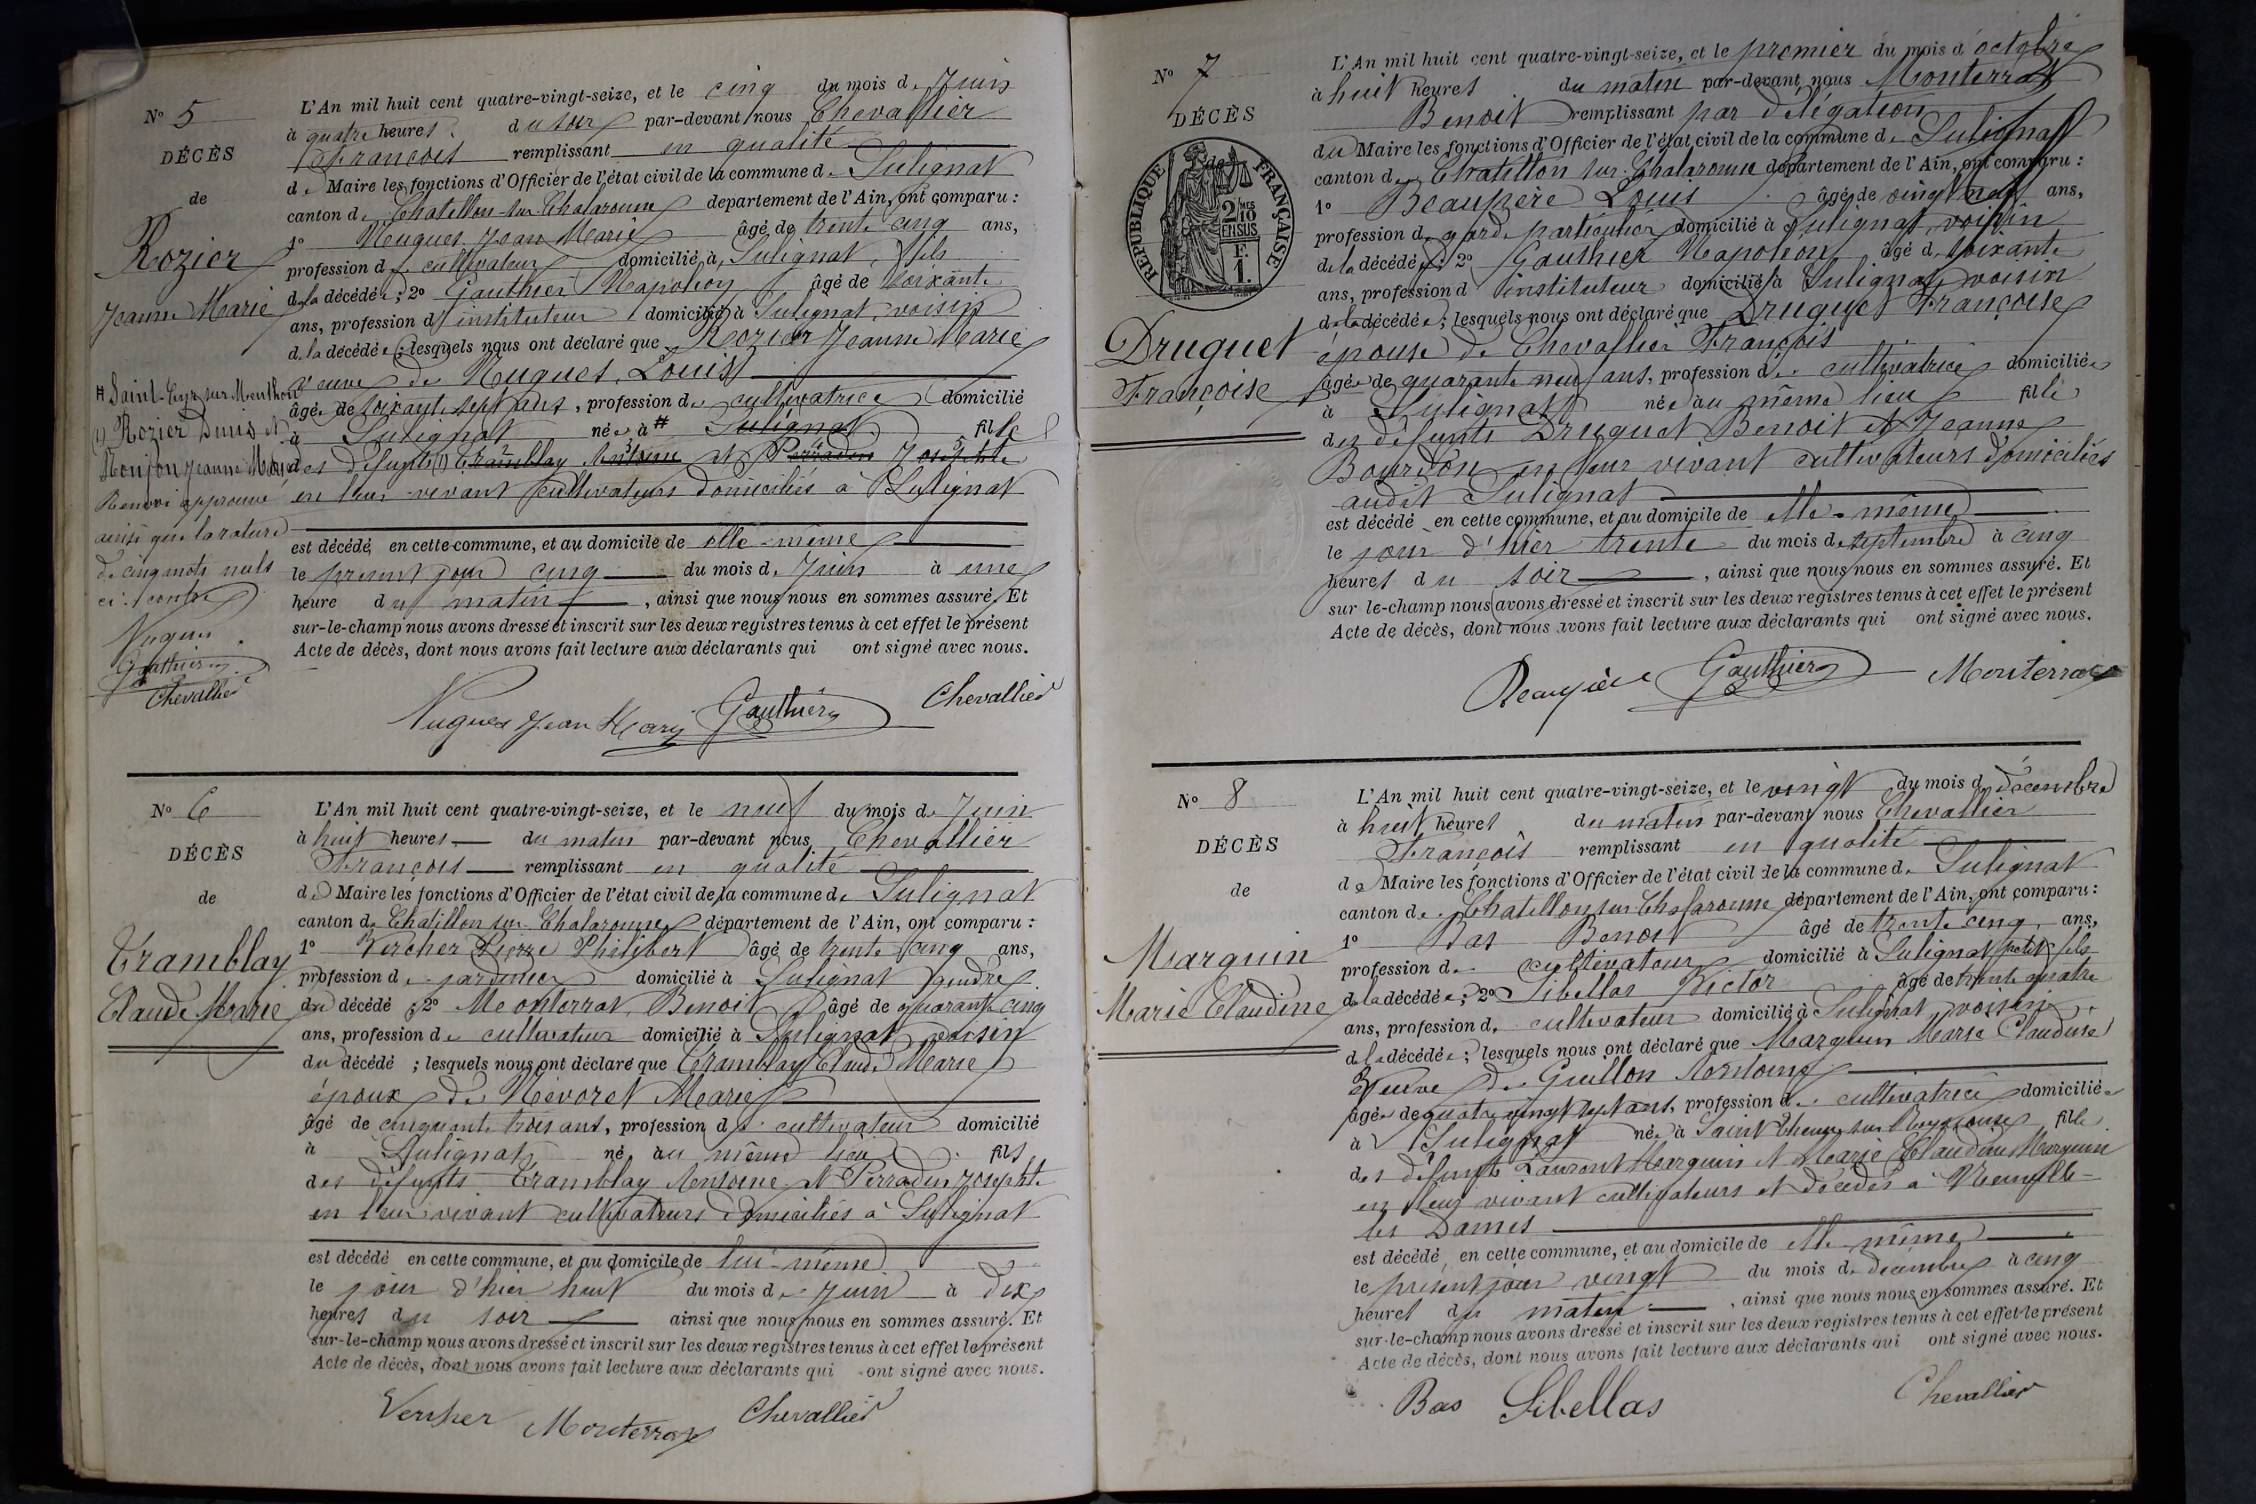 N° 5
DÉCÈS
de
Rozier
Jeanne Marie
# Saint-Cyr sur Menthon
(1) Rozier Denis et
Monjon Jeanne Marie
Renvoi approuvé
ainsi que la rature
de cinq mots nuls
ci-contre
Nugues
Gauthier
Chevallier
L'An mil huit cent quatre-vingt-seize, et le cinq du mois de Juin
à quatre heures du soir par-devant nous Chevallier
François remplissant en qualité
de Maire les fonctions d'Officier de l'état civil de la commune de Sulignat
canton de Chatillon-sur-Chalaronne département de l'Ain, ont comparu :
1° Nugues Jean Marie âgé de trente cinq ans,
profession de cultivateur domicilié à Sulignat, fils
de la décédée ; 2° Gauthier Napoléon âgé de soixante
ans, profession d'instituteur domicilié à Sulignat, voisin
de la décédée ; lesquels nous ont déclaré que Rozier Jeanne Marie
veuve de Nugues Louis
âgée de soixante sept ans, profession de cultivatrice domicilié
à Sulignat née à # Sulignat fille
des défunts (1) Tramblay Antoine et Perradin Josephte
en leur vivant cultivateurs domiciliés à Sulignat
est décédé en cette commune, et au domicile de elle-même
le présent jour cinq du mois de Juin à une
heure du matin, ainsi que nous nous en sommes assuré. Et
sur-le-champ nous avons dressé et inscrit sur les deux registres tenus à cet effet le présent
Acte de décès, dont nous avons fait lecture aux déclarants qui ont signé avec nous.
Nugues Jean Mary Gauthier Chevallier
N° 6
DÉCÈS
de
Tramblay
Claude Marie
L'An mil huit cent quatre-vingt-seize, et le neuf du mois de Juin
à huit heures du matin par-devant nous Chevallier
François remplissant en qualité
de Maire les fonctions d'Officier de l'état civil de la commune de Sulignat
canton de Chatillon sur Chalaronne département de l'Ain, ont comparu :
1° Vercher Pierre Philibert âgé de trente cinq ans,
profession de jardinier domicilié à Sulignat gendre
du décédé ; 2° Monterrat Benoit âgé de quarante cinq
ans, profession de cultivateur domicilié à Sulignat voisin
du décédé ; lesquels nous ont déclaré que Tramblay Claude Marie
époux de Névoret Marie
âgé de cinquante trois ans, profession de cultivateur domicilié
à Sulignat né au même lieu fils
des défunts Tramblay Antoine et Perradin Josephte
en leur vivant cultivateurs domiciliés à Sulignat
est décédé en cette commune, et au domicile de lui-même
le jour d'hier huit du mois de Juin à dix
heures du soir ainsi que nous nous en sommes assuré. Et
sur-le-champ nous avons dressé et inscrit sur les deux registres tenus à cet effet le présent
Acte de décès, dont nous avons fait lecture aux déclarants qui ont signé avec nous.
Vercher Monterrat Chevallier
N° 7
DÉCÈS
de
RÉPUBLIQUE FRANÇAISE
2/10 MES
EN SUS
F.
1.
Druguet
Françoise
L'An mil huit cent quatre-vingt-seize, et le premier du mois d'octobre
à huit heures du matin par-devant nous Monterrat
Benoit remplissant par délégation
du Maire les fonctions d'Officier de l'état civil de la commune de Sulignat
canton de Chatillon sur Chalaronne département de l'Ain, ont comparu :
1° Beaupère Louis âgé de vingt neuf ans,
profession de garde particulier domicilié à Sulignat, voisin
de la décédée ; 2° Gauthier Napoléon âgé de soixante
ans, profession d'instituteur domicilié à Sulignat, voisin
de la décédée ; lesquels nous ont déclaré que Druguet Françoise
épouse de Chevallier François
âgée de quarante neuf ans, profession de cultivatrice domiciliée
à Sulignat née au même lieu fille
des défunts Druguet Benoit et Jeanne
Bourdon en leur vivant cultivateurs domiciliés
audit Sulignat
est décédé en cette commune, et au domicile de elle-même
le jour d'hier trente du mois de septembre à cinq
heures du soir, ainsi que nous nous en sommes assuré. Et
sur le-champ nous avons dressé et inscrit sur les deux registres tenus à cet effet le présent
Acte de décès, dont nous avons fait lecture aux déclarants qui ont signé avec nous.
Beaupère Gauthier Monterrat
N° 8
DÉCÈS
de
Marguin
Marie Claudine
L'An mil huit cent quatre-vingt-seize, et le vingt du mois de décembre
à huit heures du matin par-devant nous Chevallier
François remplissant en qualité
de Maire les fonctions d'Officier de l'état civil de la commune de Sulignat
canton de Chatillon sur Chalaronne département de l'Ain, ont comparu :
1° Bas Benoit âgé de trente cinq ans,
profession de cultivateur domicilié à Sulignat petit fils
de la décédée ; 2° Sibellas Victor âgé de trente quatre
ans, profession de cultivateur domicilié à Sulignat voisin
de la décédée ; lesquels nous ont déclaré que Marguin Marie Claudine
Veuve de Guillon Antoine
âgée de quatre vingt sept ans, profession de cultivatrice domiciliée
à Sulignat née à Saint Etienne sur Reyssouze fille
des défunts Laurent Marguin et Marie Claudine Marguin
en leur vivant cultivateurs et décédés à Neuville-
les Dames
est décédé en cette commune, et au domicile de elle-même
le présent jour vingt du mois de décembre à cinq
heures du matin, ainsi que nous nous en sommes assuré. Et
sur-le-champ nous avons dressé et inscrit sur les deux registres tenus à cet effet le présent
Acte de décès, dont nous avons fait lecture aux déclarants qui ont signé avec nous.
Bas Sibellas Chevallier